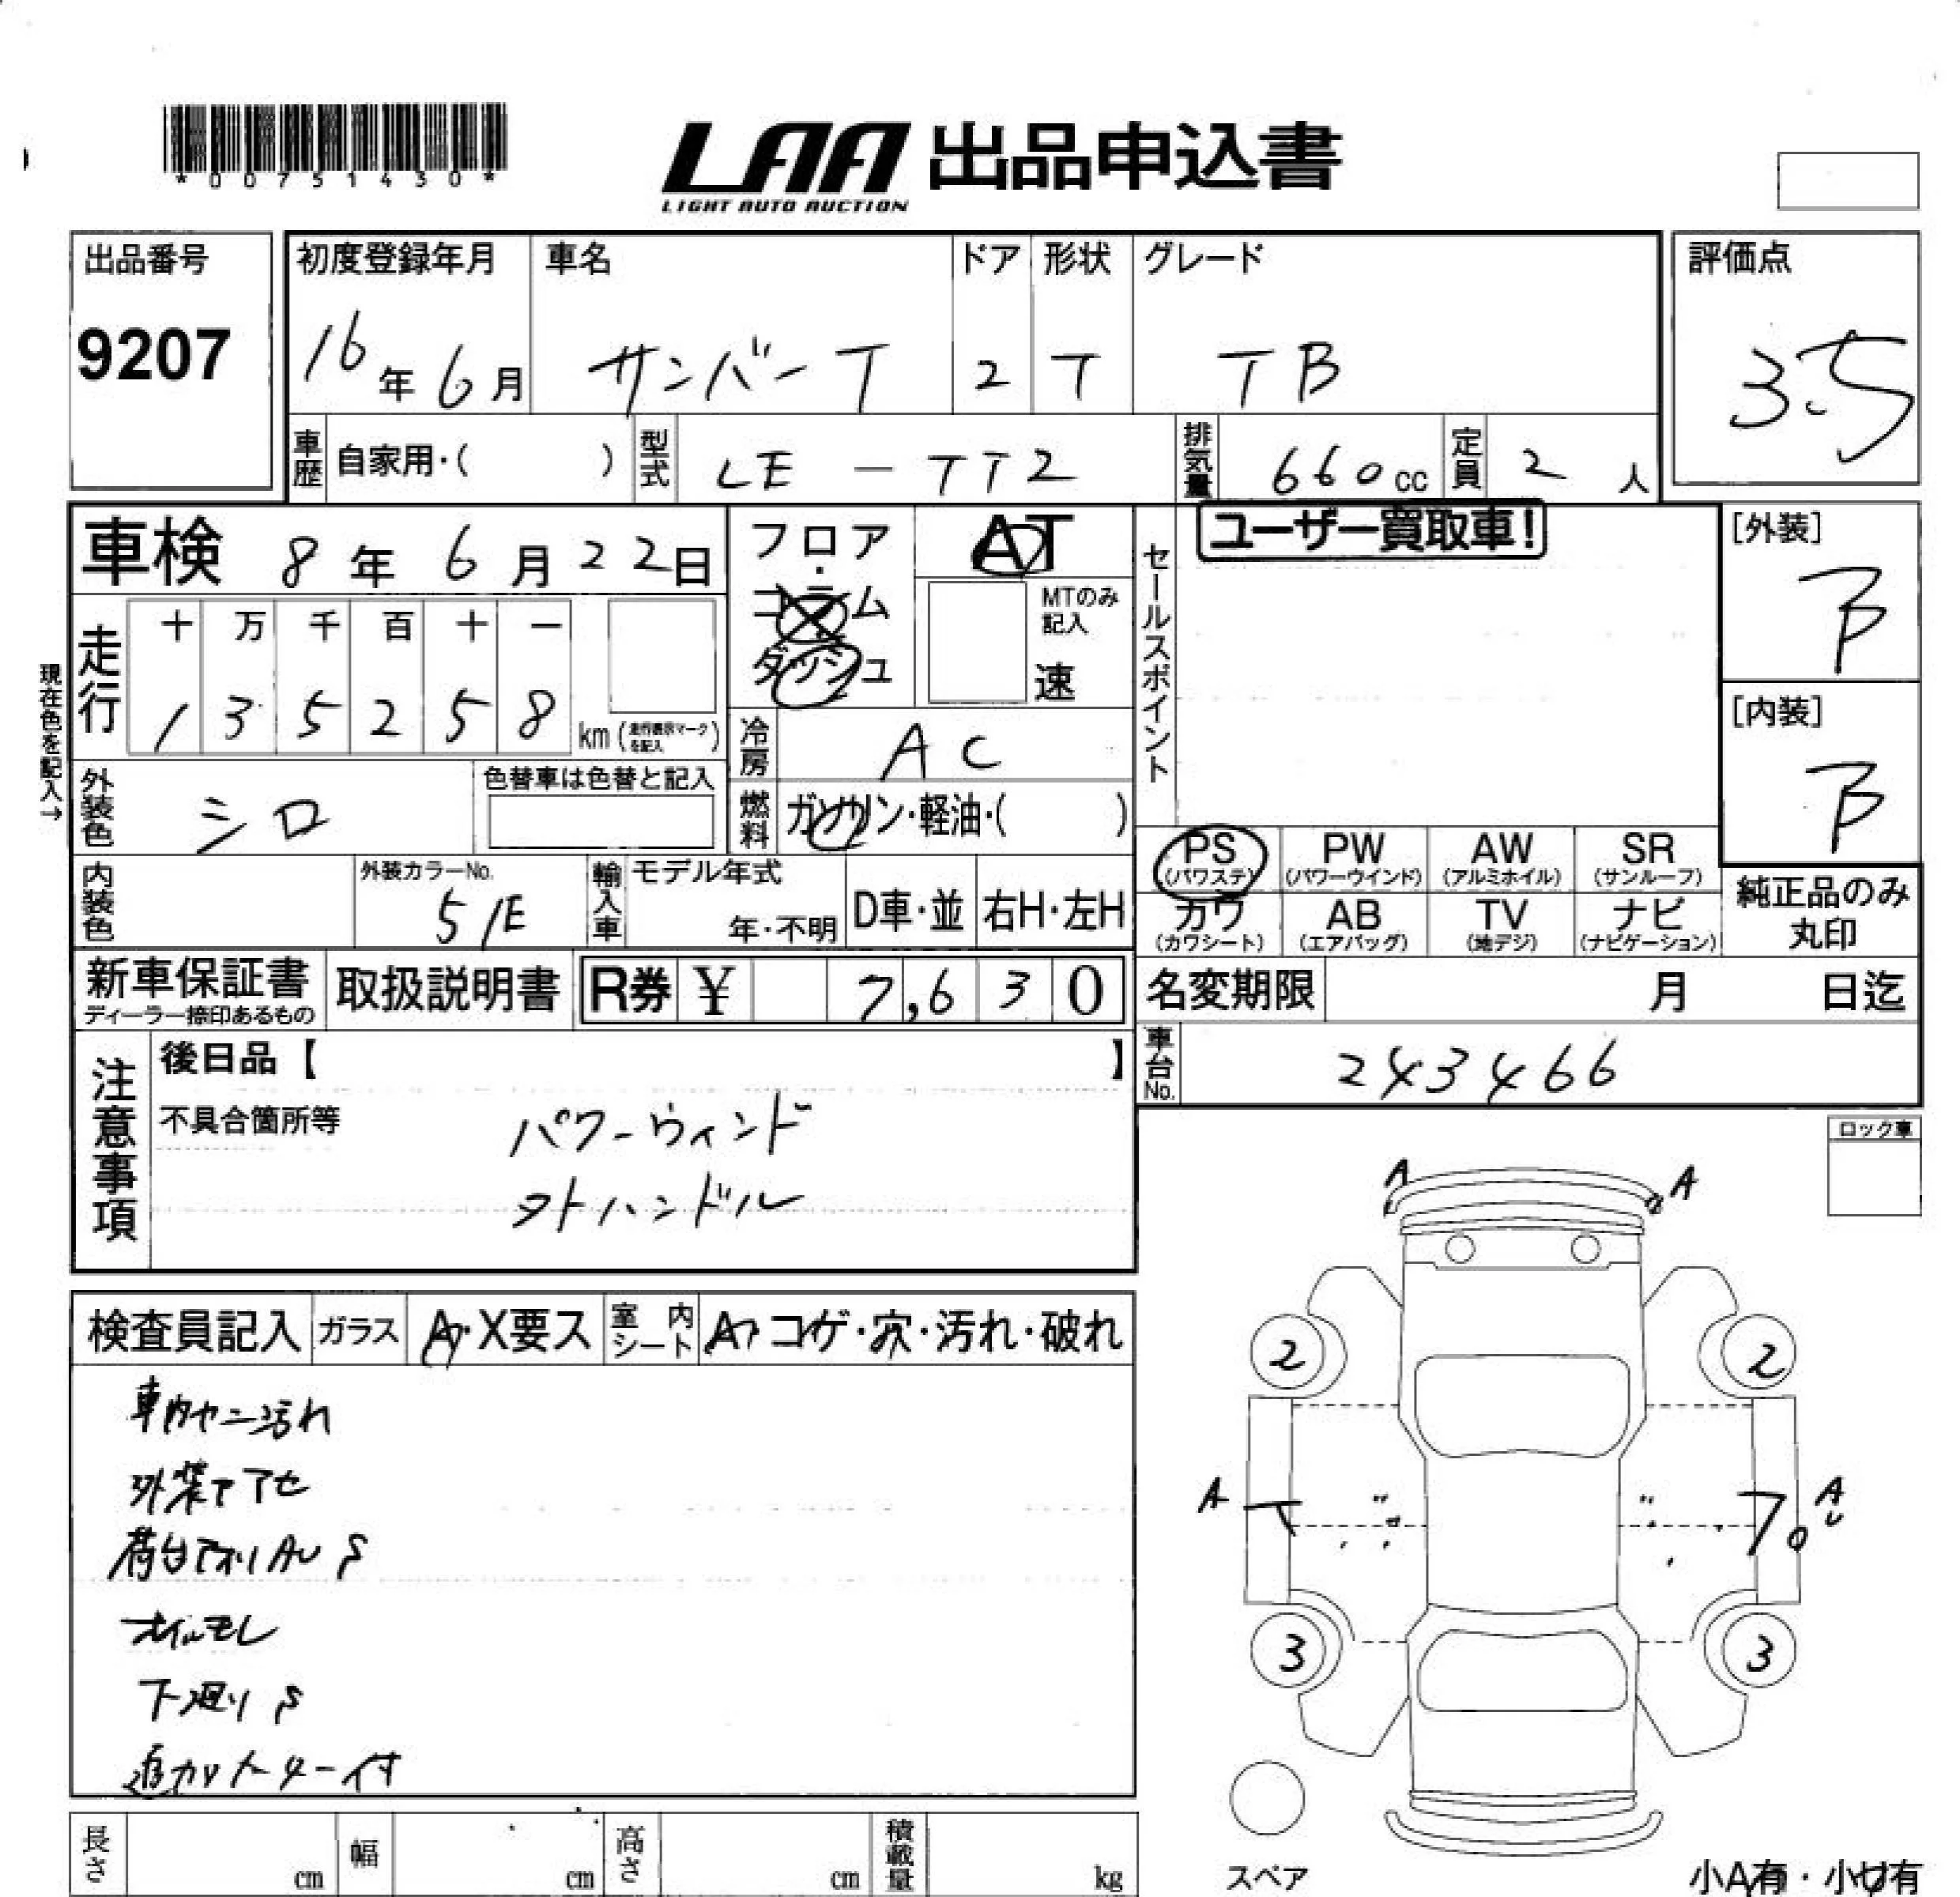 *00751430*
LAA 出品申込書
LIGHT AUTO AUCTION
出品番号
9207
初度登録年月
16年6月
車名
サンバーT
ドア
2
形状
T
グレード
TB
評価点
3.5
車歴 自家用・( )
型式 LE-TT2
排気量 660cc
定員 2人
車検 8年6月22日
フロア・コラム
ダッシュ
AT
MTのみ記入
速
セールスポイント
ユーザー買取車!
[外装]
B
[内装]
B
現在色を記入→
走行
十 万 千 百 十 一
1 3 5 2 5 8 km (走行表示マークを記入)
冷房 AC
外装色 シロ
色替車は色替と記入
燃料 ガソリン・軽油・( )
内装色
外装カラーNo.
51E
輸入車
モデル年式
年・不明
D車・並
右H・左H
PS (パワステ)
PW (パワーウインド)
AW (アルミホイル)
SR (サンルーフ)
カワ (カワシート)
AB (エアバッグ)
TV (地デジ)
ナビ (ナビゲーション)
純正品のみ丸印
新車保証書
ディーラー捺印あるもの
取扱説明書
R券 ¥ 7,630
名変期限 月 日迄
車台No. 243466
注意事項
後日品【 】
不具合箇所等
パワーウィンド
外ハンドル
ロック車
検査員記入
ガラス A・X要ス
室内シート A・コゲ・穴・汚れ・破れ
車内ヤニ汚れ
外装アアセ
荷台アオリAU S
オイルモレ
下廻りS
追加メーター付
A A
2 2
A A
U
3 3
スペア
小A有・小U有
長さ cm
幅 cm
高さ cm
積載量 kg